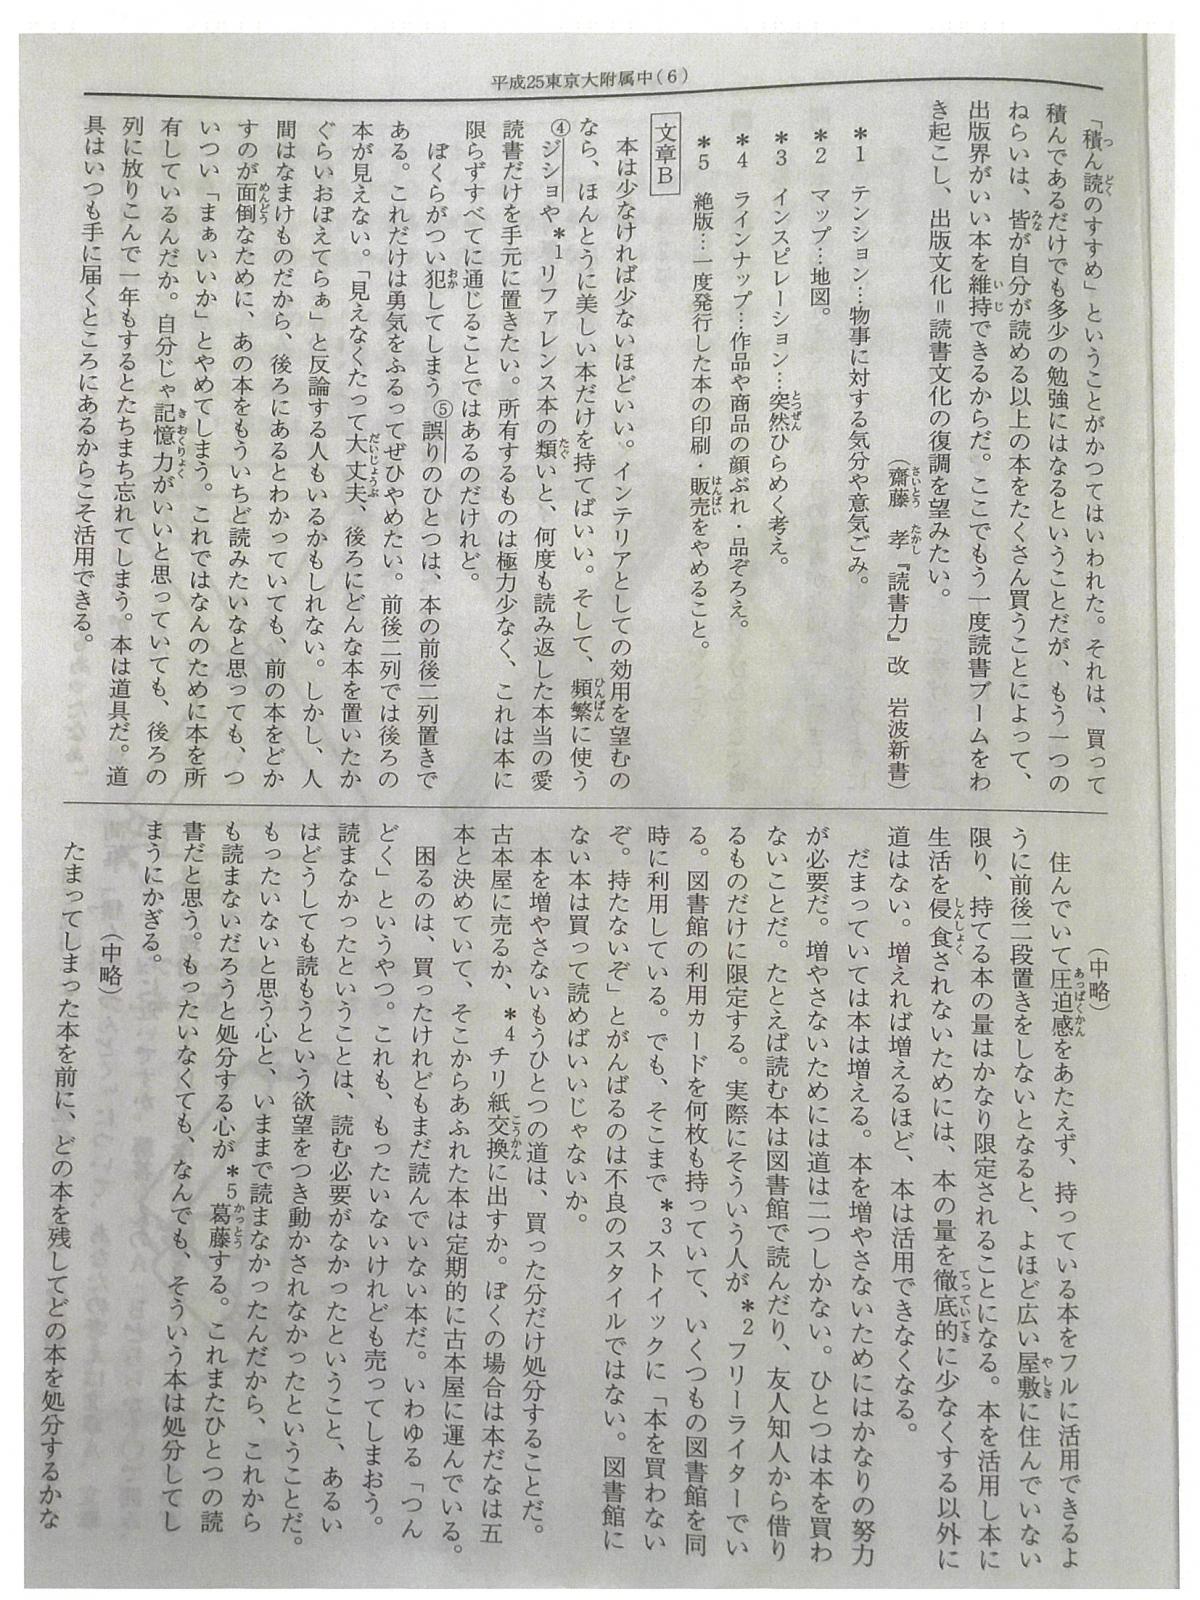 平成25東京大附属中(6)
「積ん読のすすめ」ということがかつてはいわれた。それは、買って
積んであるだけでも多少の勉強にはなるということだが、もう一つの
ねらいは、皆が自分が読める以上の本をたくさん買うことによって、
出版界がいい本を維持できるからだ。ここでもう一度読書ブームをわ
き起こし、出版文化=読書文化の復調を望みたい。
(齋藤 孝『読書力』改 岩波新書)
*1 テンション…物事に対する気分や意気ごみ。
*2 マップ…地図。
*3 インスピレーション…突然ひらめく考え。
*4 ラインナップ…作品や商品の顔ぶれ・品ぞろえ。
*5 絶版…一度発行した本の印刷・販売をやめること。
文章B
本は少なければ少ないほどいい。インテリアとしての効用を望むの
なら、ほんとうに美しい本だけを持てばいい。そして、頻繁に使う
④ジショや*1リファレンス本の類いと、何度も読み返した本当の愛
読書だけを手元に置きたい。所有するものは極力少なく、これは本に
限らずすべてに通じることではあるのだけれど。
ぼくらがつい犯してしまう⑤誤りのひとつは、本の前後二列置きで
ある。これだけは勇気をふるってぜひやめたい。前後二列では後ろの
本が見えない。「見えなくたって大丈夫、後ろにどんな本を置いたか
ぐらいおぼえてらぁ」と反論する人もいるかもしれない。しかし、人
間はなまけものだから、後ろにあるとわかっていても、前の本をどか
すのが面倒なために、あの本をもういちど読みたいなと思っても、つ
いつい「まぁいいか」とやめてしまう。これではなんのために本を所
有しているんだか。自分じゃ記憶力がいいと思っていても、後ろの
列に放りこんで一年もするとたちまち忘れてしまう。本は道具だ。道
具はいつも手に届くところにあるからこそ活用できる。
(中略)
住んでいて圧迫感をあたえず、持っている本をフルに活用できるよ
うに前後二段置きをしないとなると、よほど広い屋敷に住んでいない
限り、持てる本の量はかなり限定されることになる。本を活用し本に
生活を侵食されないためには、本の量を徹底的に少なくする以外に
道はない。増えれば増えるほど、本は活用できなくなる。
だまっていては本は増える。本を増やさないためにはかなりの努力
が必要だ。増やさないためには道は二つしかない。ひとつは本を買わ
ないことだ。たとえば読む本は図書館で読んだり、友人知人から借り
るものだけに限定する。実際にそういう人が*2フリーライターでい
る。図書館の利用カードを何枚も持っていて、いくつもの図書館を同
時に利用している。でも、そこまで*3ストイックに「本を買わない
ぞ。持たないぞ」とがんばるのは不良のスタイルではない。図書館に
ない本は買って読めばいいじゃないか。
本を増やさないもうひとつの道は、買った分だけ処分することだ。
古本屋に売るか、*4チリ紙交換に出すか。ぼくの場合は本だなは五
本と決めていて、そこからあふれた本は定期的に古本屋に運んでいる。
困るのは、買ったけれどもまだ読んでいない本だ。いわゆる「つん
どく」というやつ。これも、もったいないけれども売ってしまおう。
読まなかったということは、読む必要がなかったということ、あるい
はどうしても読もうという欲望をつき動かされなかったということだ。
もったいないと思う心と、いままで読まなかったんだから、これから
も読まないだろうと処分する心が*5葛藤する。これまたひとつの読
書だと思う。もったいなくても、なんでも、そういう本は処分してし
まうにかぎる。
(中略)
たまってしまった本を前に、どの本を残してどの本を処分するかな